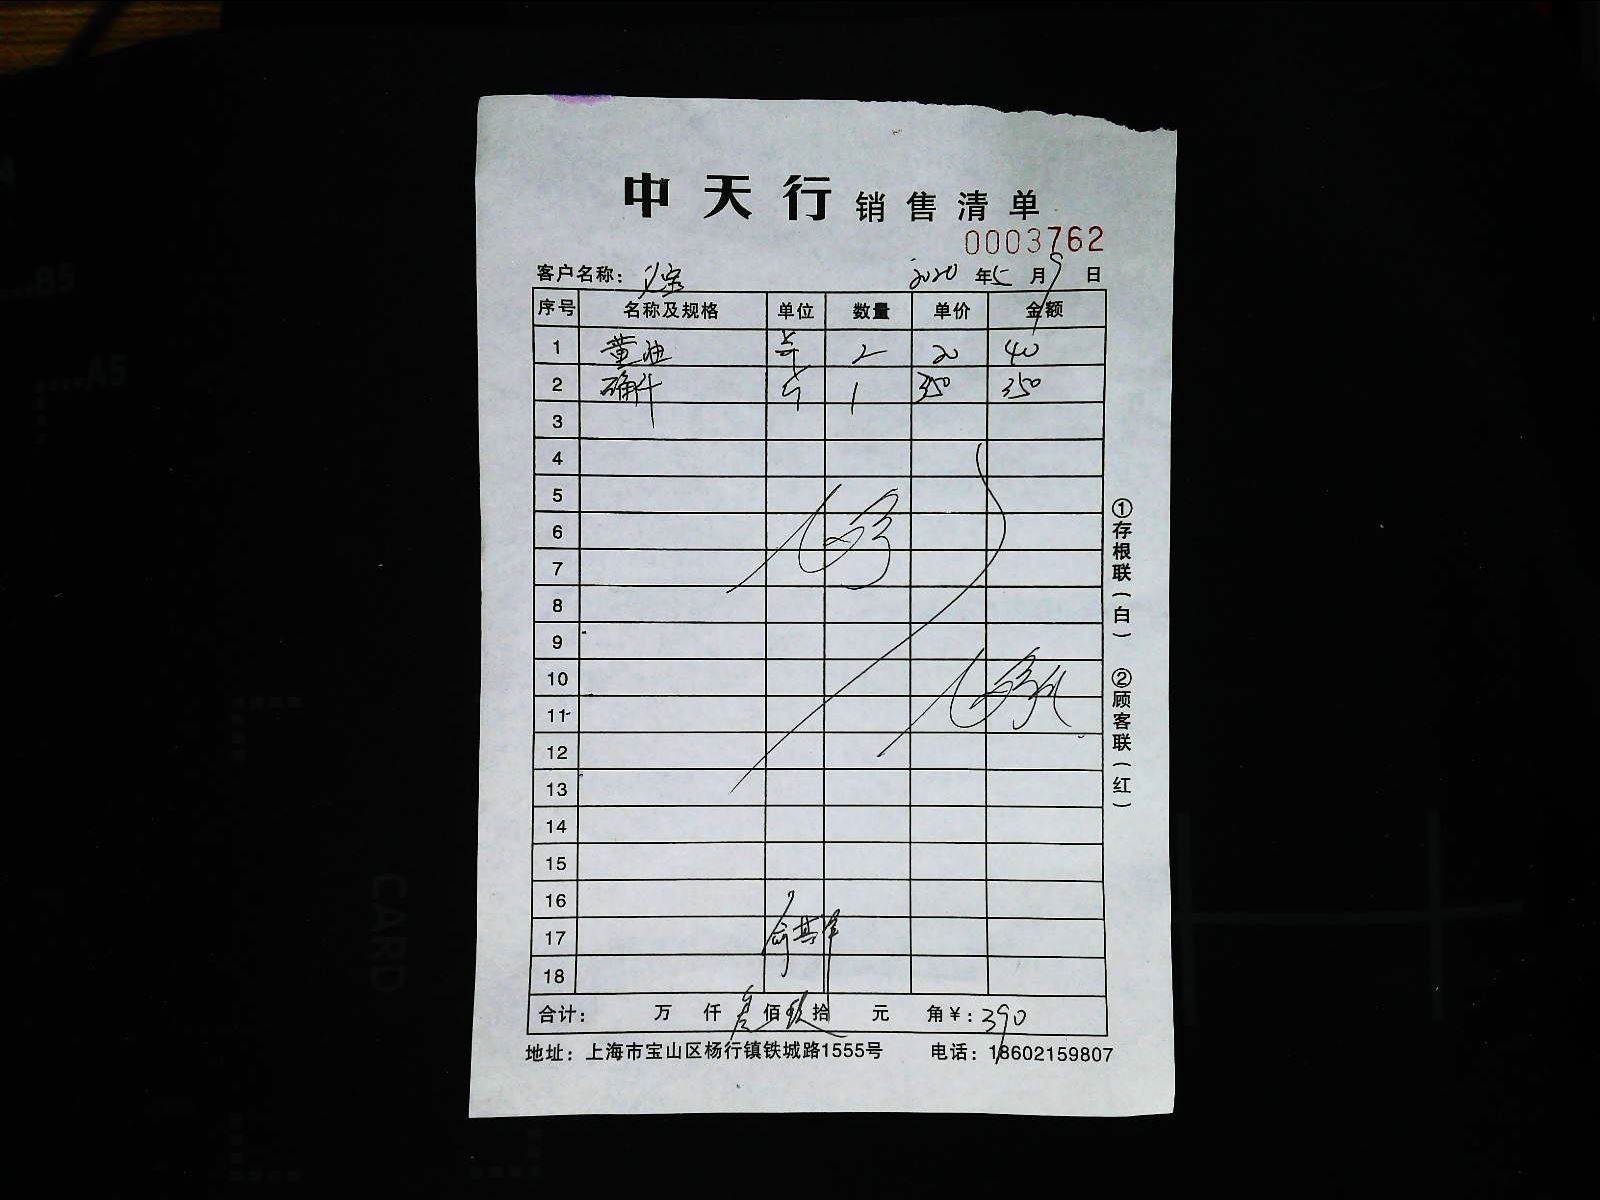 中天行 销售清单
0003762
客户名称： 2020 年 5 月 9 日
序号 名称及规格 单位 数量 单价 金额
1 黄油 2 20 40
2 1 350 350
3
4
5
6
7
8
9
10
11
12
13
14
15
16
17
18
合计： 万 仟 叁 佰 玖 拾 元 角 ¥：390
地址：上海市宝山区杨行镇铁城路1555号 电话：18602159807
①存根联（白） ②顾客联（红）